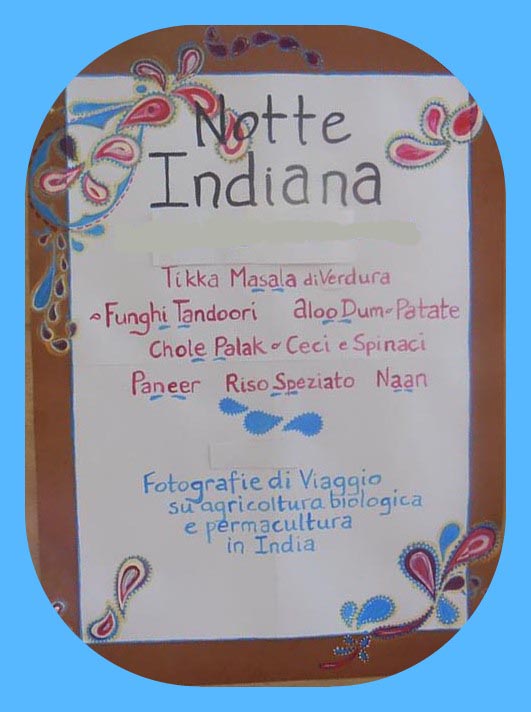 Notte
Indiana
Tikka Masala di Verdura
Funghi Tandoori aloo Dum-Patate
Chole Palak - Ceci e Spinaci
Paneer Riso Speziato Naan
Fotografie di Viaggio
su agricoltura biologica
e permacultura
in India